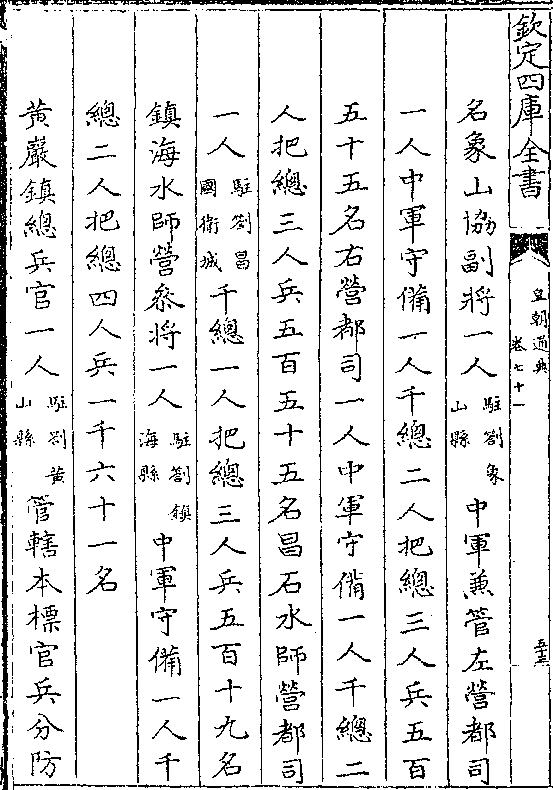 欽定四庫全書
皇朝通典
卷七十一
五十三
名象山協副將一人駐劄象山縣中軍兼管左營都司
一人中軍守備一人千總二人把總三人兵五百
五十五名右營都司一人中軍守備一人千總二
人把總三人兵五百五十五名昌石水師營都司
一人駐劄昌國衛城千總一人把總三人兵五百十九名
鎮海水師營叅將一人駐劄鎮海縣中軍守備一人千
總二人把總四人兵一千六十一名
黃巖鎮總兵官一人駐劄黃山縣管轄本標官兵分防